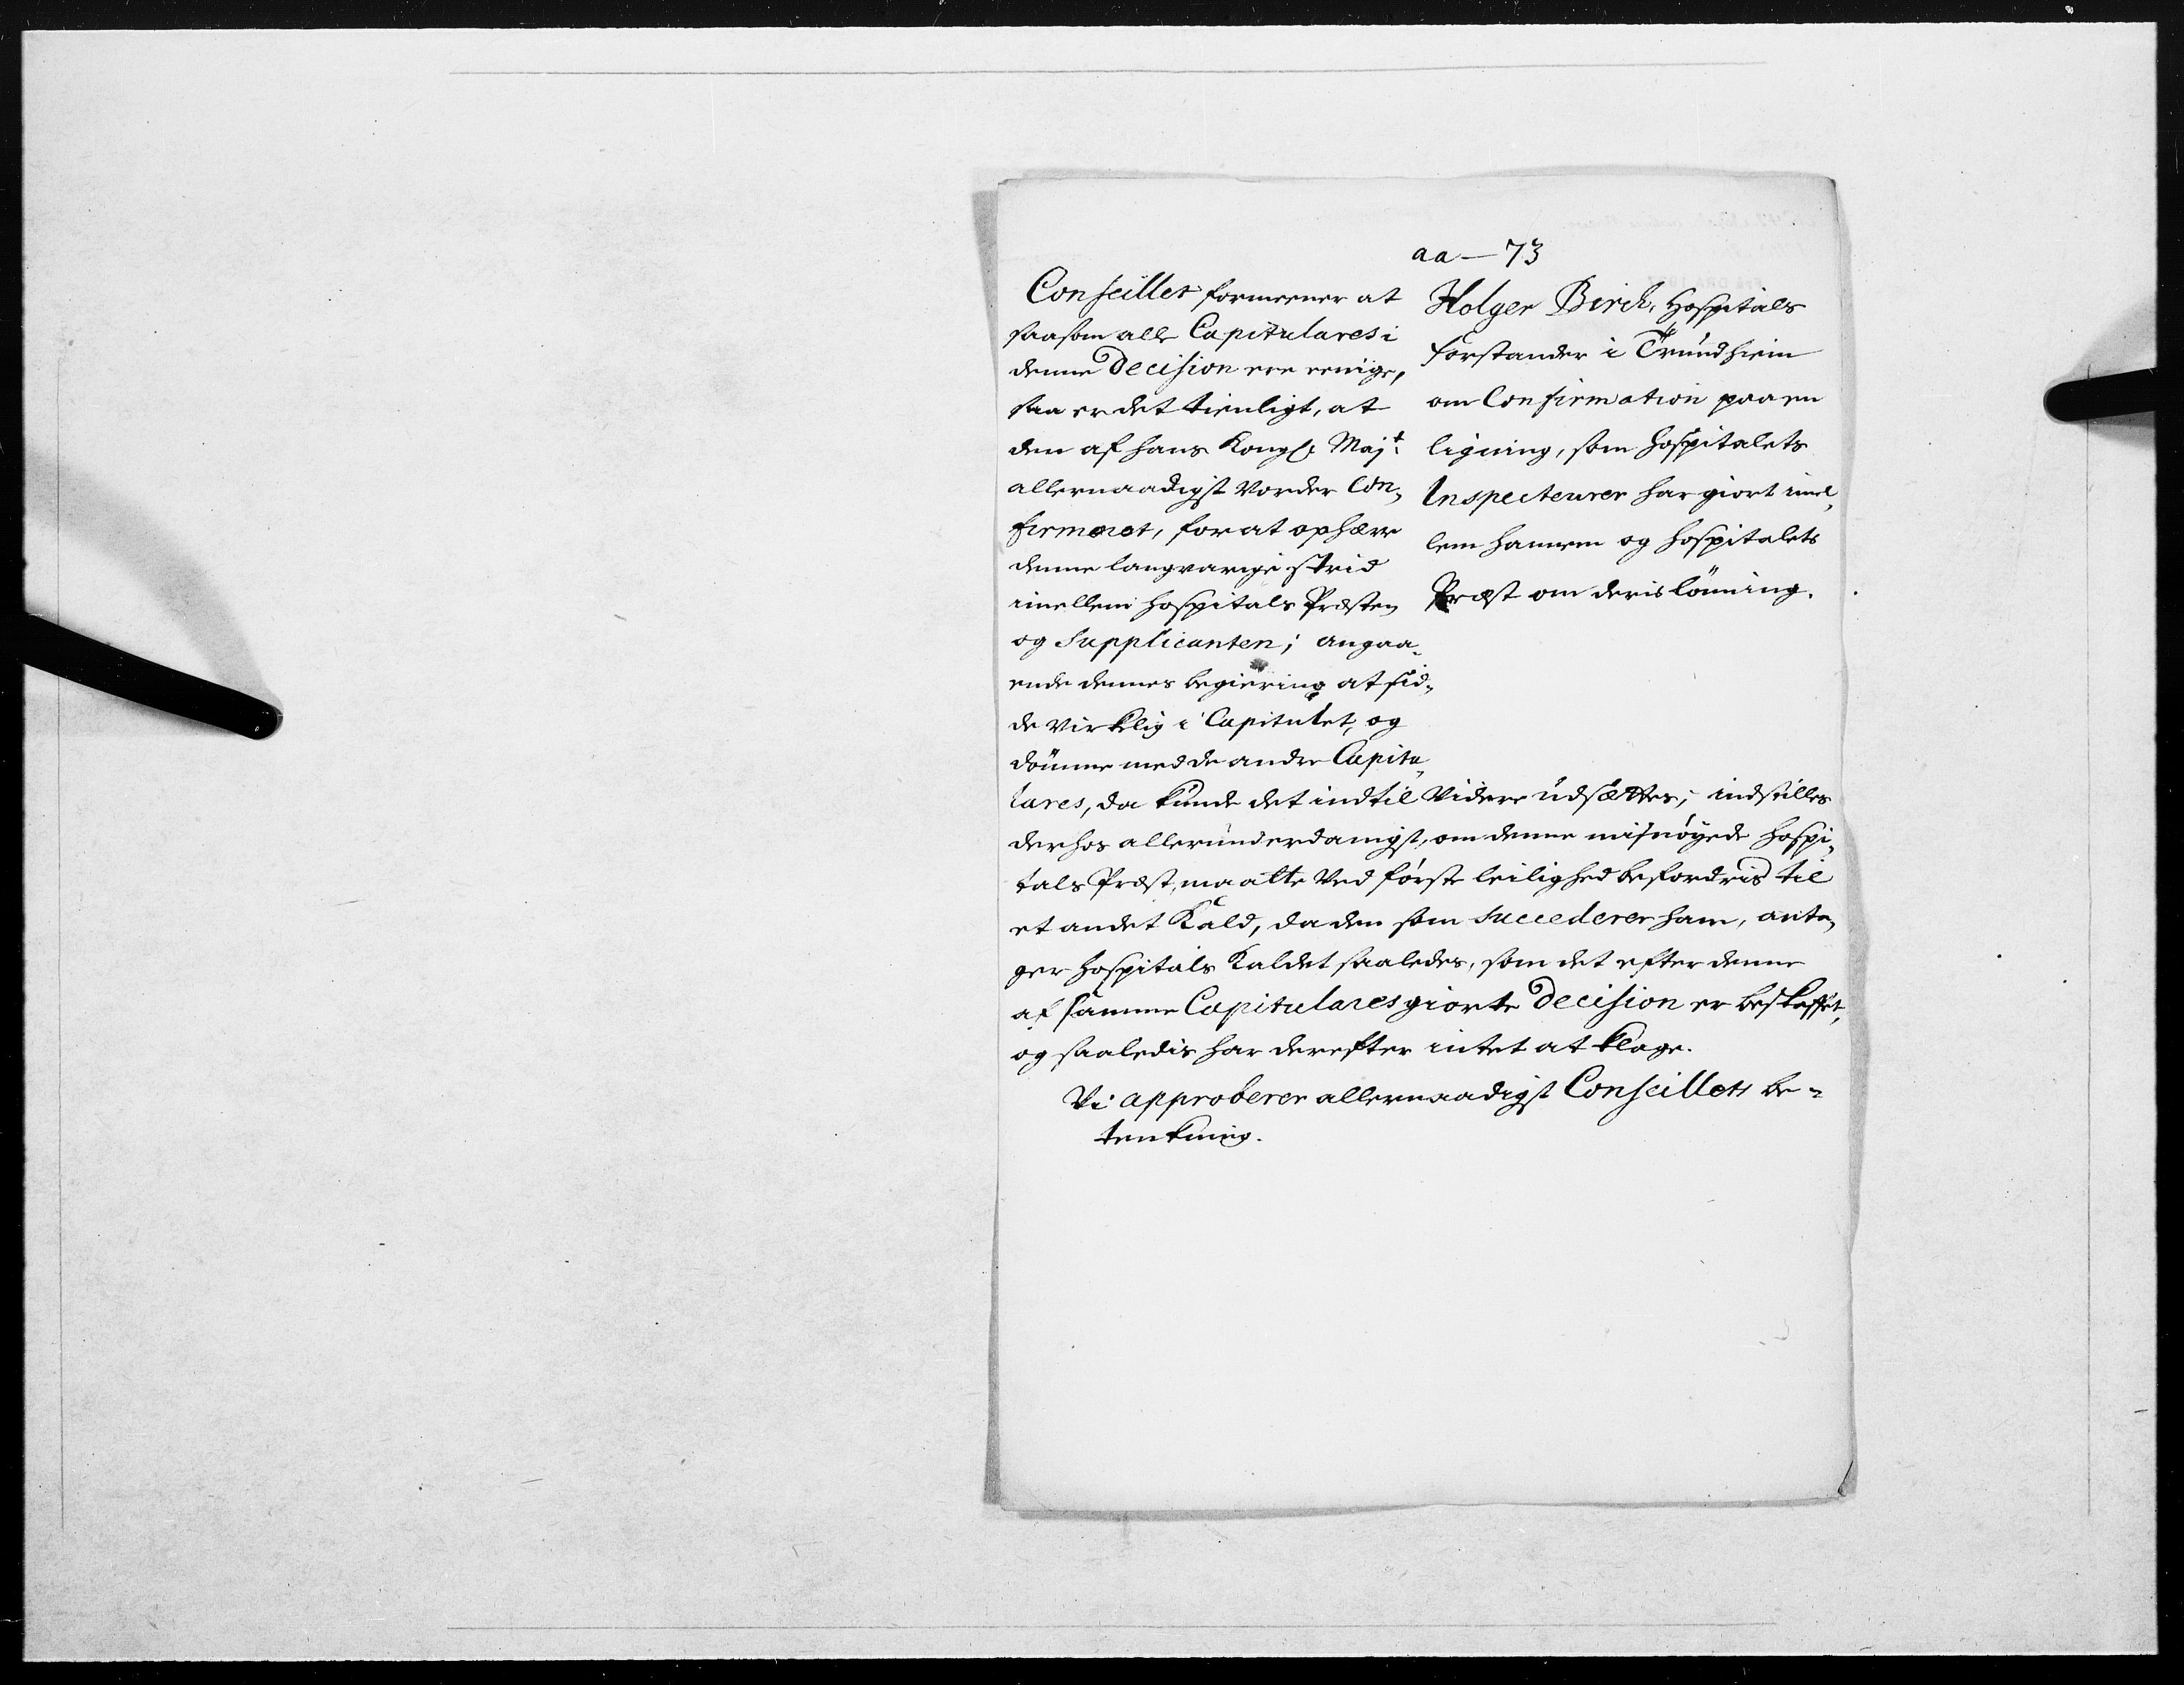 aa — 73
Holger Birch, Hospitals
forstander i Trundhiem
om Confirmation paa en
ligning, som Hospitalets
Inspecteurer har giort imel,
lem hannem og Hospitalets
Præst om deris lönning.
Conseillet formeener at
saasom alle Capitulares i
denne Decision ere eenige,
saa er det tienligt, at
den af hans Kongl. Majt
allernaadigst vorder Con,
firmeret, for at ophæve
denne langvarige strid
imellem Hospitals Præsten
og Supplicanten; angaa,
ende dennes begiering at sid,
de virkelig i Capitulet, og
dömme med de andre Capitu,
lares, da kunde det indtil videre udsættes; indstilles
derhos allerunderdanigst, om denne misnöyede Hospi,
tals Præst, maatte ved förste leilighed befordris til
et andet Kald, da den som succederer ham, anta,
ger Hospitals Kaldet saaledes, som det efter denne
af samme Capitulares giorte Decision er beskaffet,
og saaledis har derefter intet at klage.
Vi approberer allernaadigst Conseillets be-
tenkning.